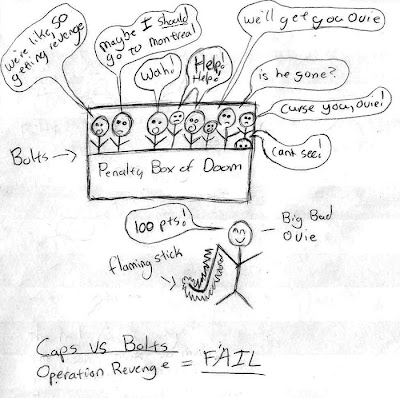 we're like, SO
getting revenge
maybe I should
go to montreal
Wah!
Help!
Helpo!
we'll get you Ovie
is he gone?
curse you, Ovie!
cant see!
Bolts →
Penalty Box of Doom
100 pts!
Big Bad
Ovie
flaming stick
Caps vs Bolts
Operation Revenge = FAIL